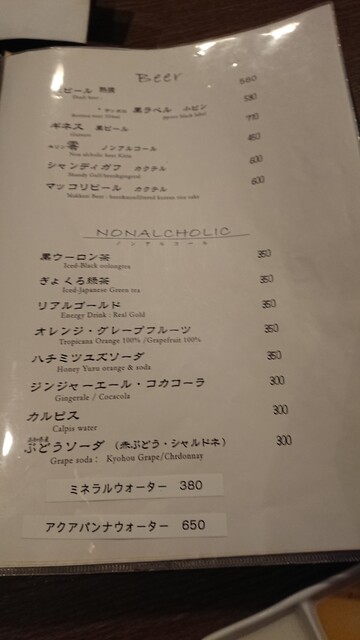 Beer
ビール 熟撰 550
黒ラベル 小ビン 530
ギネス 黒ビール
Guiness
キリン 零 ノンアルコール 450
Non alchole beer Kirin
シャンディガフ カクテル 600
Shandy Gaff: beer&gingerale
マッコリビール カクテル 600
Makkori Beer :
NONALCHOLIC
ノンアルコール
黒ウーロン茶 350
Iced-Black oolongtea
ぎょくろ緑茶 350
Iced-Japanese Green tea
リアルゴールド 350
Energy Drink : Real Gold
オレンジ・グレープフルーツ 350
Tropicana Orange 100% /Grapefruit 100%
ハチミツユズソーダ 350
Honey Yuzu orange & soda
ジンジャーエール・コカコーラ 300
Gingerale / Cocacola
カルピス 300
Calpis water
ぶどうソーダ (赤ぶどう・シャルドネ) 300
Grape soda : Kyohou Grape/Chrdonnay
ミネラルウオーター 380
アクアパンナウオーター 650